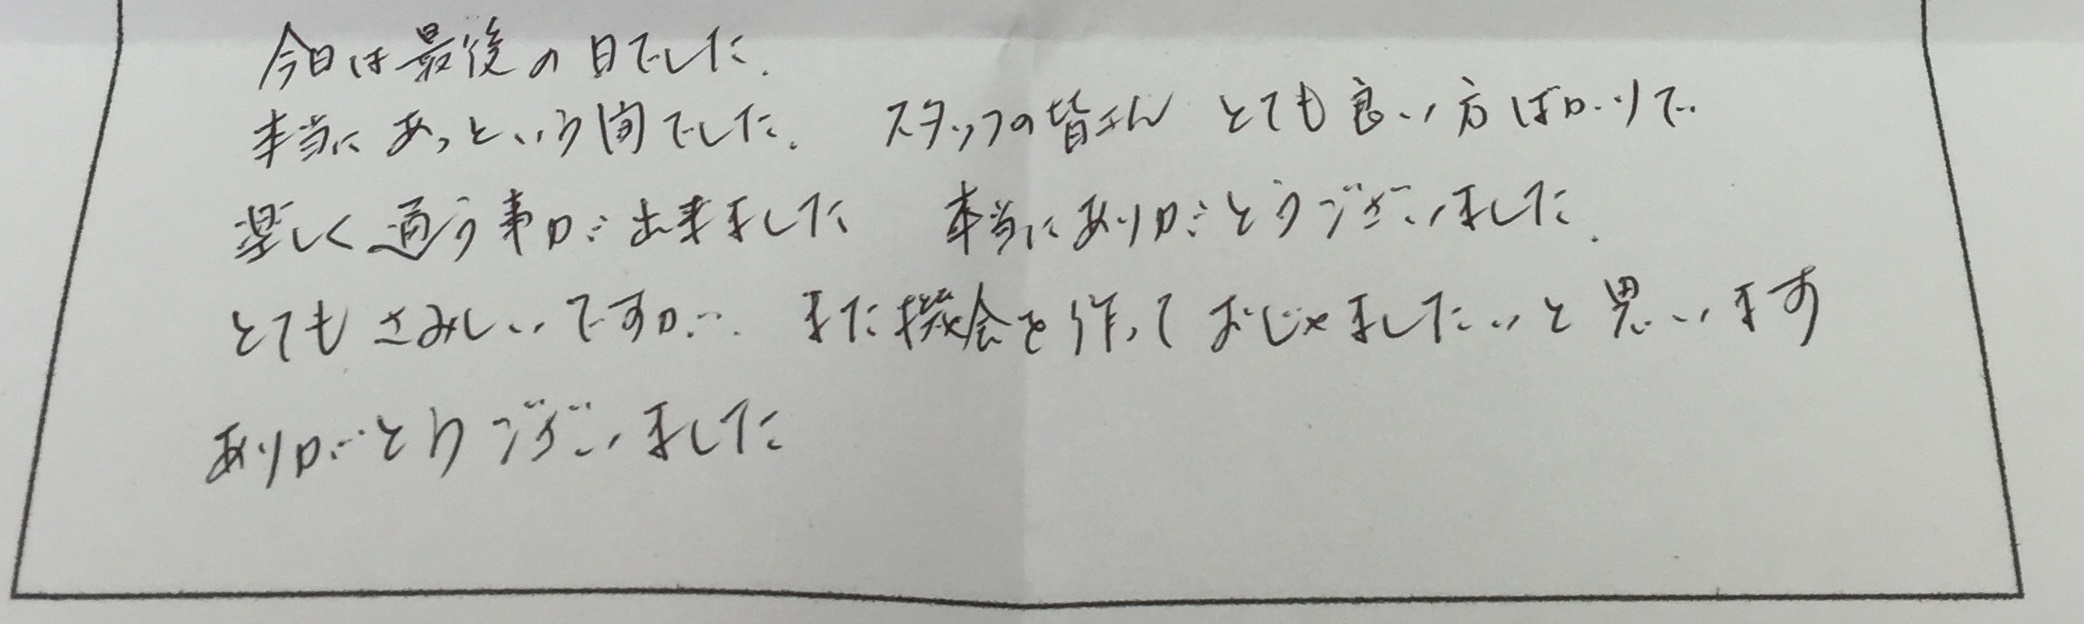 今日は最後の日でした.
本当にあっという間でした. スタッフの皆さん とても良い方ばかりで
楽しく通う事が出来ました 本当にありがとうございました.
とてもさみしいですが… また機会を作っておじゃましたいと思います
ありがとうございました